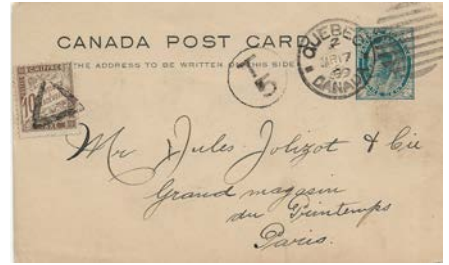 CANADA POST CARD
THE ADDRESS TO BE WRITTEN ON THIS SIDE
QUEBEC
2
CANADA
T
5
CHIFFRE
10
Mr Jules Jolizot & Cie
Grand magasin
du Printemps
Paris.